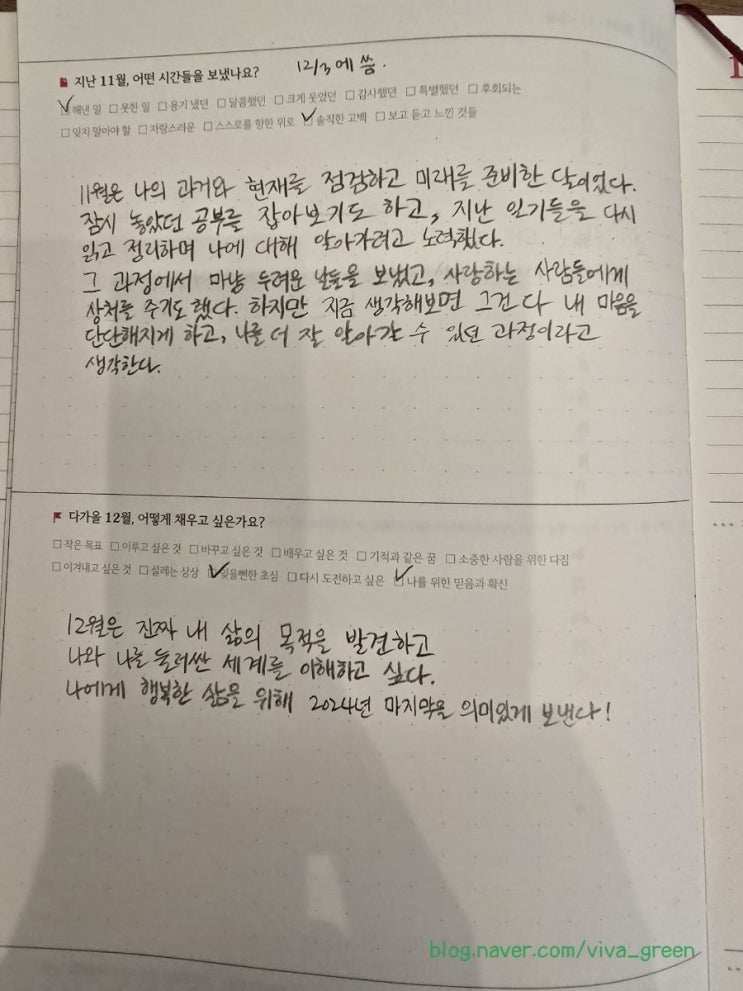 지난 11월, 어떤 시간들을 보냈나요? 12/3에 씀.
☑ 해낸 일 □ 못한 일 □ 용기 냈던 □ 달콤했던 □ 크게 웃었던 □ 감사했던 □ 특별했던 □ 후회되는
□ 잊지 말아야 할 □ 자랑스러운 □ 스스로를 향한 위로 ☑ 솔직한 고백 □ 보고 듣고 느낀 것들
11월은 나의 과거와 현재를 점검하고 미래를 준비한 달이었다.
잠시 놓았던 공부를 잡아보기도 하고, 지난 일기들을 다시
읽고 정리하며 나에 대해 알아가려고 노력했다.
그 과정에서 마냥 두려운 날들을 보냈고, 사랑하는 사람들에게
상처를 주기도 했다. 하지만 지금 생각해보면 그건 다 내 마음을
단단해지게 하고, 나를 더 잘 알아갈 수 있던 과정이라고
생각한다.
다가올 12월, 어떻게 채우고 싶은가요?
□ 작은 목표 □ 이루고 싶은 것 □ 바꾸고 싶은 것 □ 배우고 싶은 것 □ 기적과 같은 꿈 □ 소중한 사람을 위한 다짐
□ 이겨내고 싶은 것 □ 설레는 상상 ☑ 잊을뻔한 초심 □ 다시 도전하고 싶은 ☑ 나를 위한 믿음과 확신
12월은 진짜 내 삶의 목적을 발견하고
나와 나를 둘러싼 세계를 이해하고 싶다.
나에게 행복한 삶을 위해 2024년 마지막을 의미있게 보낸다!
blog.naver.com/viva_green